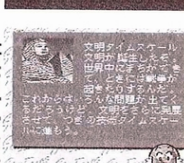 文明タイムスケール
文明が誕生したぞ。
世界中にまちができ
て、ときには戦争が
起きたりするんだ。
これからはいろんな問題が出てく
るだろうけど、文明をさらに発展
させて、つぎの
タイムスケー
ルに進もう。